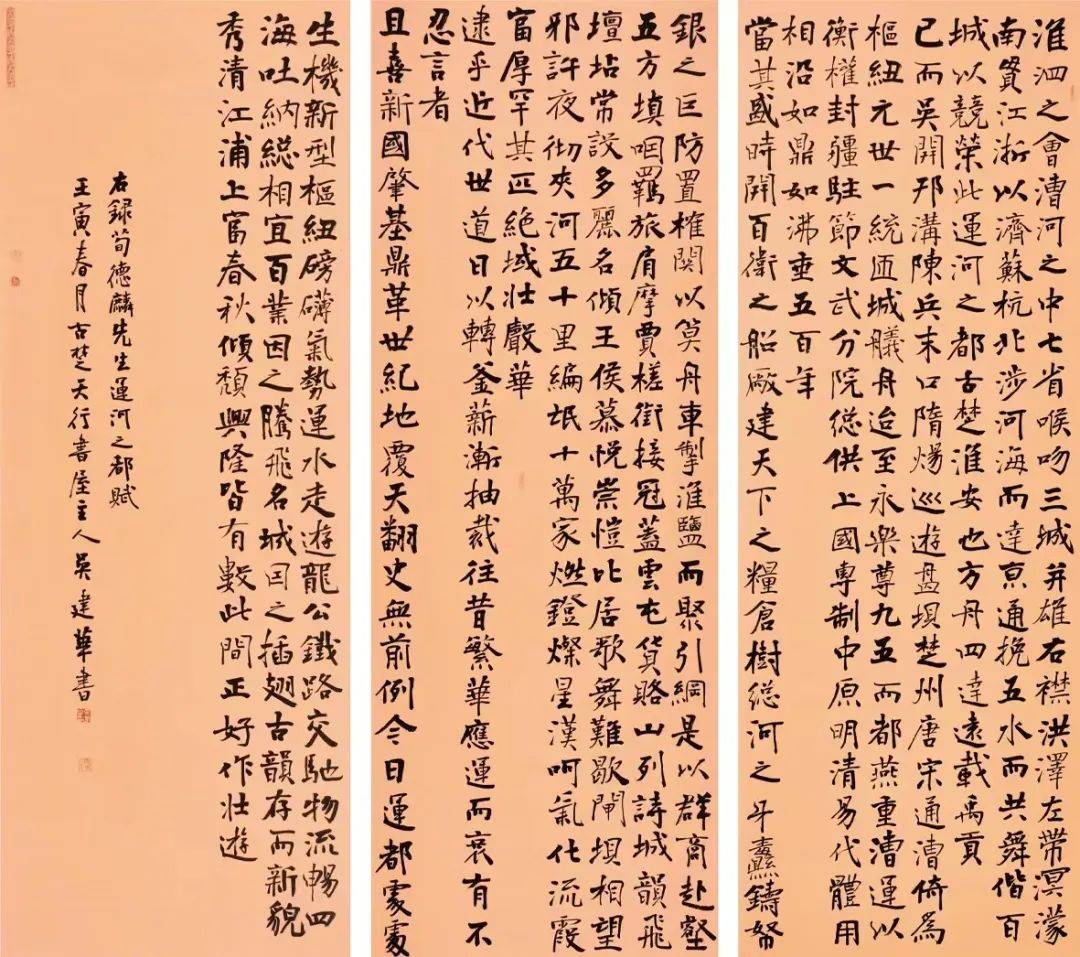 淮泗之會漕河之中七省喉吻三城并雄右襟洪澤左帶溟濛
南江浙以濟蘇杭北涉河海而達京通挽五水而共舞偕百
城以競榮此運河之都古楚淮安也方舟四達遠載禹貢
已而吳開邗溝陳兵末口隋煬巡遊盘坝楚州唐宋通漕倚為
樞紐元世一統匝城艤舟迨至永樂尊九五而都燕重漕運以
衡權封疆駐節文武分院總供上國專制中原明清易代體用
相沿如鼎如沸垂五百年
當其盛時開百衛之船廠建天下之糧倉樹總河之牙纛鑄帑
銀之巨防置榷關以筦舟車掣淮鹽而聚引綱是以群商赴壑
五方填咽羈旅肩摩賈槎銜接冠蓋雲屯貨賂山列詩城韻飛
壇坫常設多麗名傾王侯慕悅崇愷比居歌舞難歇閘坝相望
邪許夜彻夾河五十里編氓十萬家燃鐙燦星漢呵氣化流霞
富厚罕其匹絕域壯聲華
逮乎近代世道日以轉釜薪漸抽裁往昔繁華應運而衰有不
忍言者
且喜新國肇基鼎革世紀地覆天翻史無前例今日運都處處
生機新型樞紐磅礴氣勢運水走遊龍公鐵路交馳物流暢四
海吐納總相宜百業因之騰飛名城因之插翅古韻存而新貌
秀清江浦上富春秋傾頹興隆皆有數此間正好作壯遊
右録荀德麟先生運河之都賦
壬寅春月古楚天行書屋主人吳建華書